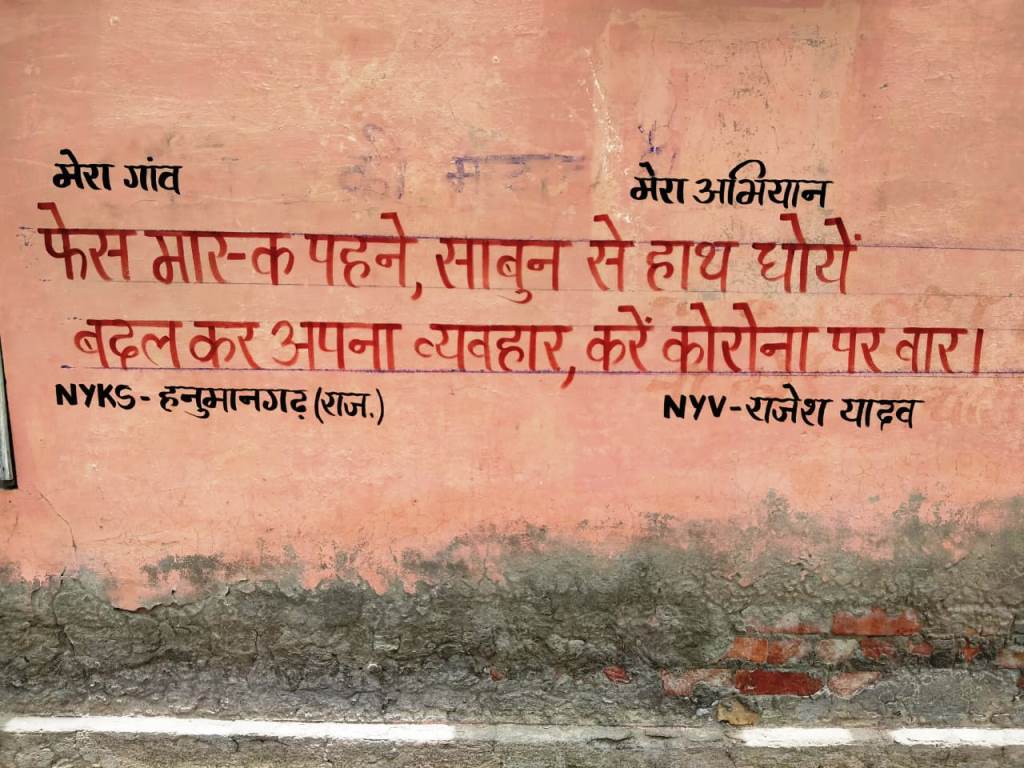 मेरा गांव मेरा अभियान
फेस मास्क पहने, साबुन से हाथ धोयें
बदल कर अपना व्यवहार, करें कोरोना पर वार।
NYKS - हनुमानगढ़ (राज.) NYV - राजेश यादव